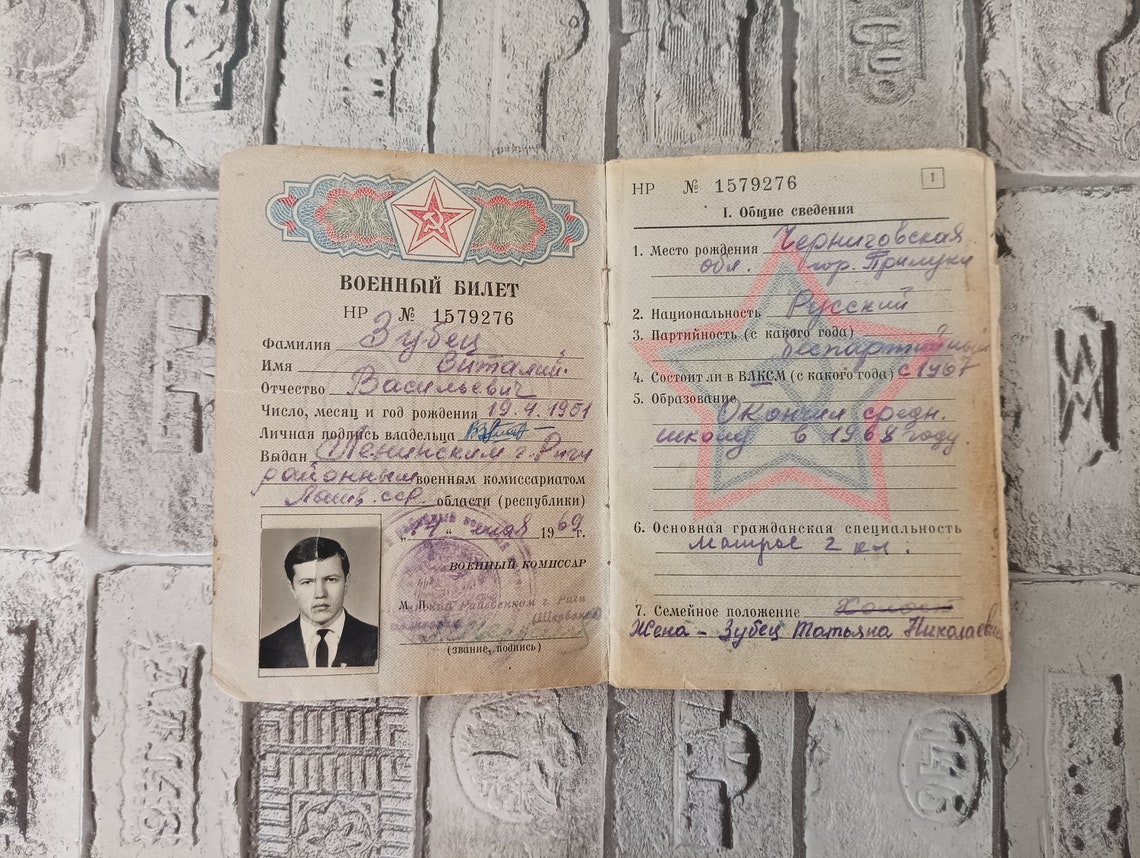 ВОЕННЫЙ БИЛЕТ
НР № 1579276
Фамилия Зубец
Имя Виталий.
Отчество Васильевич
Число, месяц и год рождения 19.4.1951
Личная подпись владельца
Выдан Ленинским г. Риги
районным военным комиссариатом
Латв. сср. области (республики)
"17" мая 1969 г.
ВОЕННЫЙ КОМИССАР
М. П.
г. Риги
(звание, подпись)
НР № 1579276
1
I. Общие сведения
1. Место рождения Черниговская
обл. гор. Прилуки
2. Национальность Русский
3. Партийность (с какого года)
беспартийный
4. Состоит ли в ВЛКСМ (с какого года) с 1967
5. Образование
Окончил средн.
школу в 1968 году.
6. Основная гражданская специальность
матрос 2 кл.
7. Семейное положение
Жена - Зубец Татьяна Николаевна